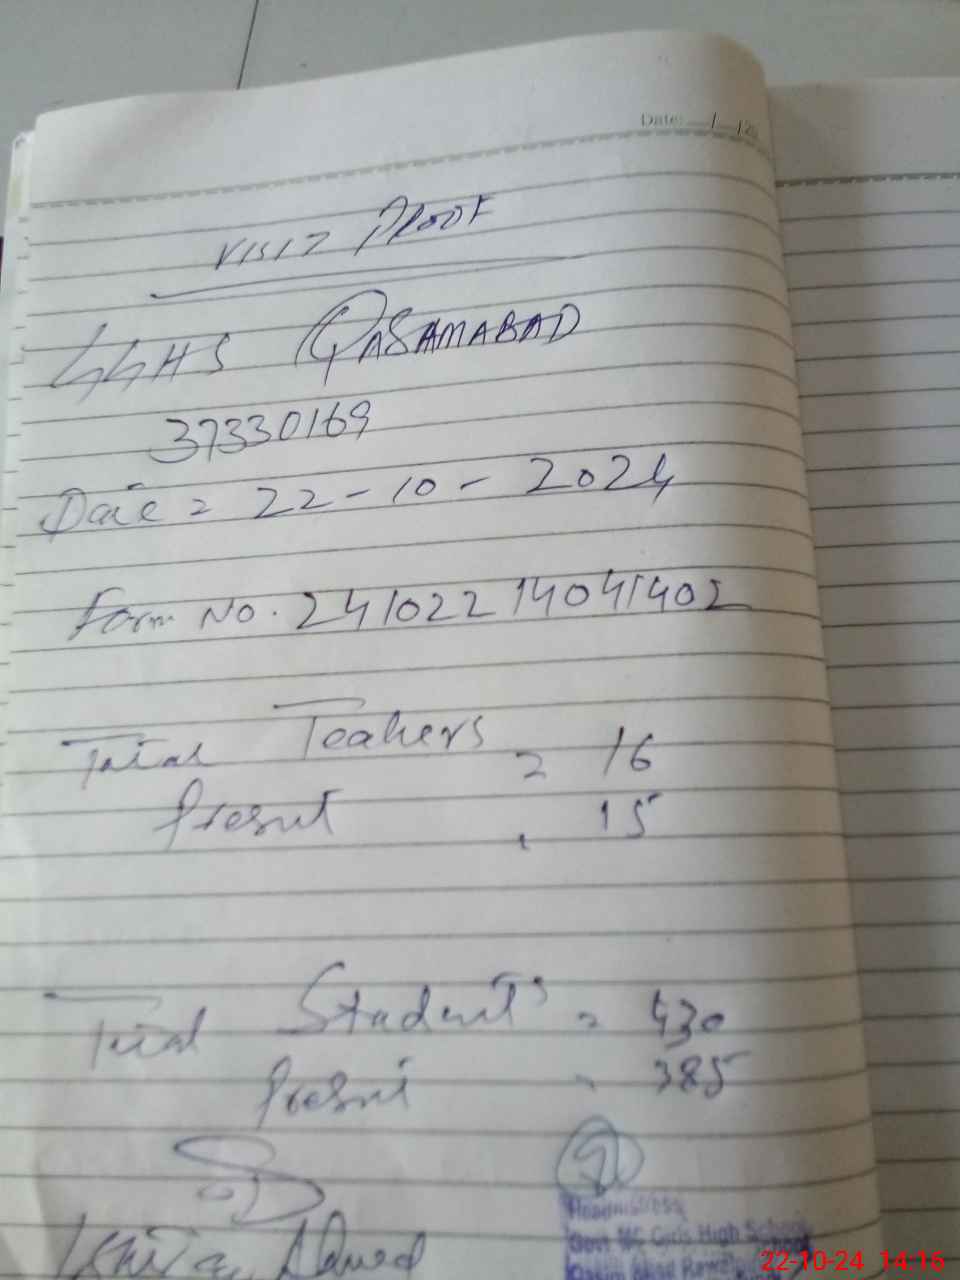 Date: / /20
VISIT PROOF
GGHS QASAMABAD
37330169
Date = 22-10-2024
Form No. 24102214041402
Total Teahers = 16
Present = 15
Total Students = 430
Present = 385
Ahmed
Headmistress
Govt MC Girls High School
22-10-24 14:16